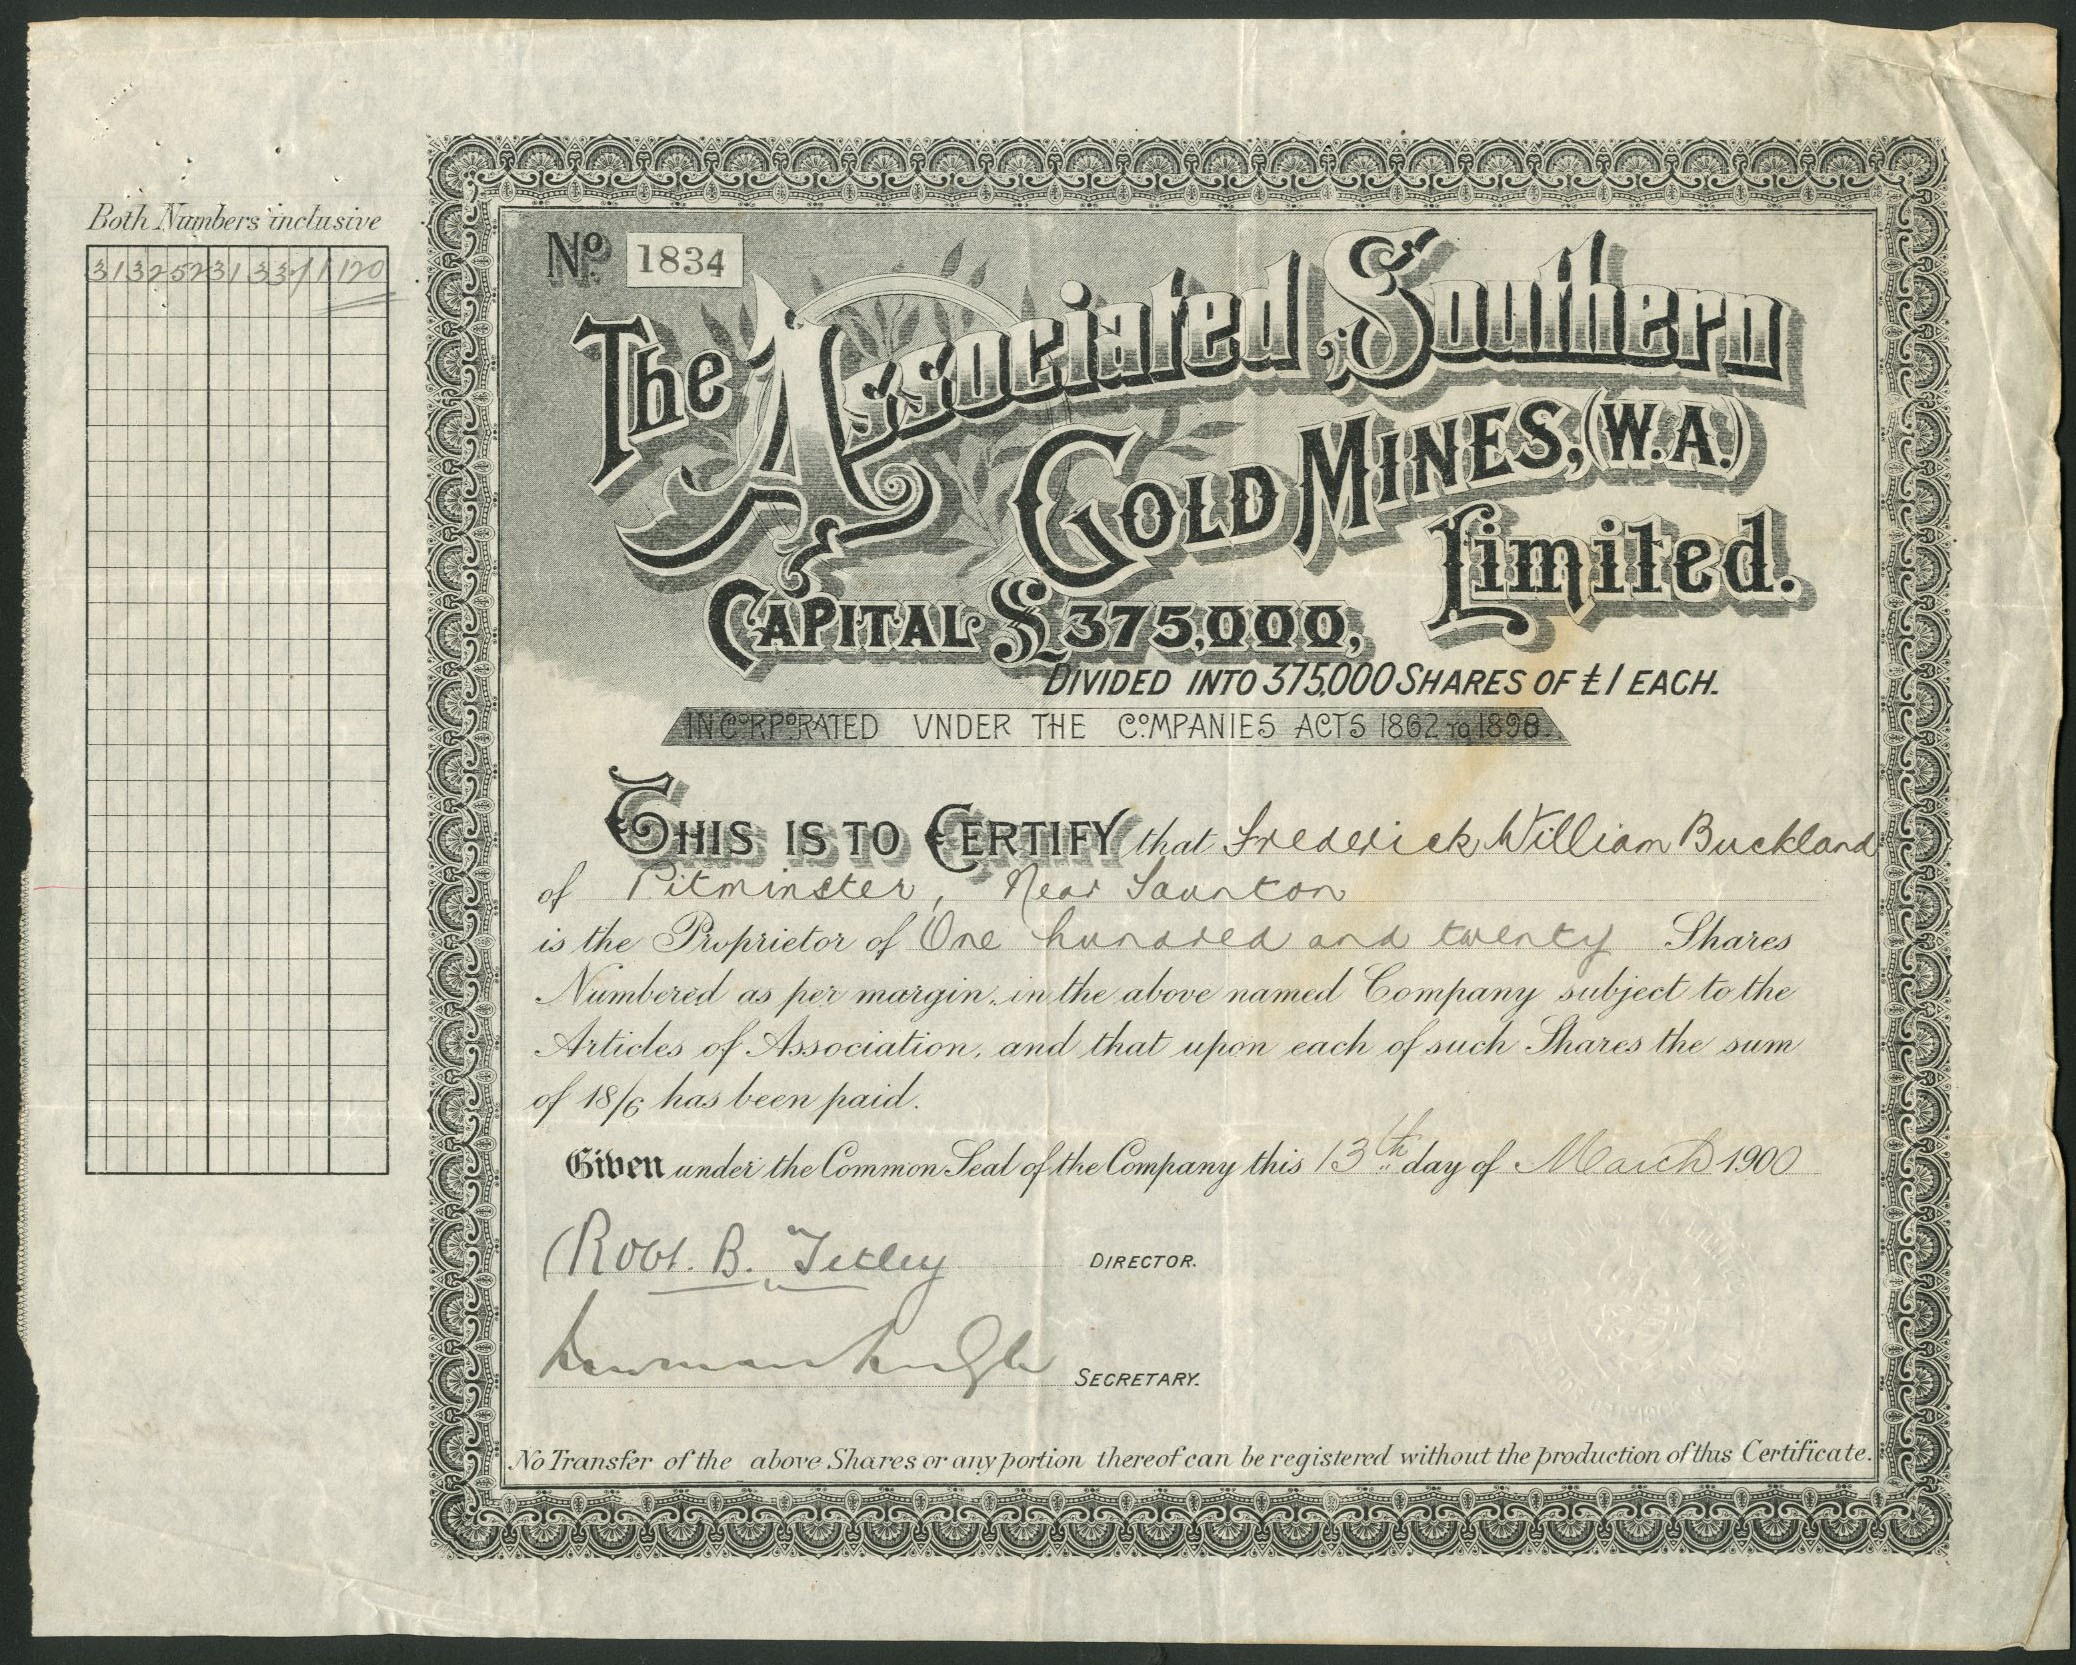 Both Numbers inclusive
313252 313371 120
No. 1834
The Associated Southern
Gold Mines, (W.A.)
Limited.
Capital £375,000,
Divided into 375,000 Shares of £1 each.
Incorporated under the Companies Acts 1862 to 1898.
This is to Certify that Frederick William Buckland
of Pitminster, Near Taunton
is the Proprietor of One hundred and twenty Shares
Numbered as per margin, in the above named Company subject to the
Articles of Association, and that upon each of such Shares the sum
of 18/6 has been paid.
Given under the Common Seal of the Company this 13th day of March 1900
Robt. B. Tetley Director.
Secretary.
No Transfer of the above Shares or any portion thereof can be registered without the production of this Certificate.